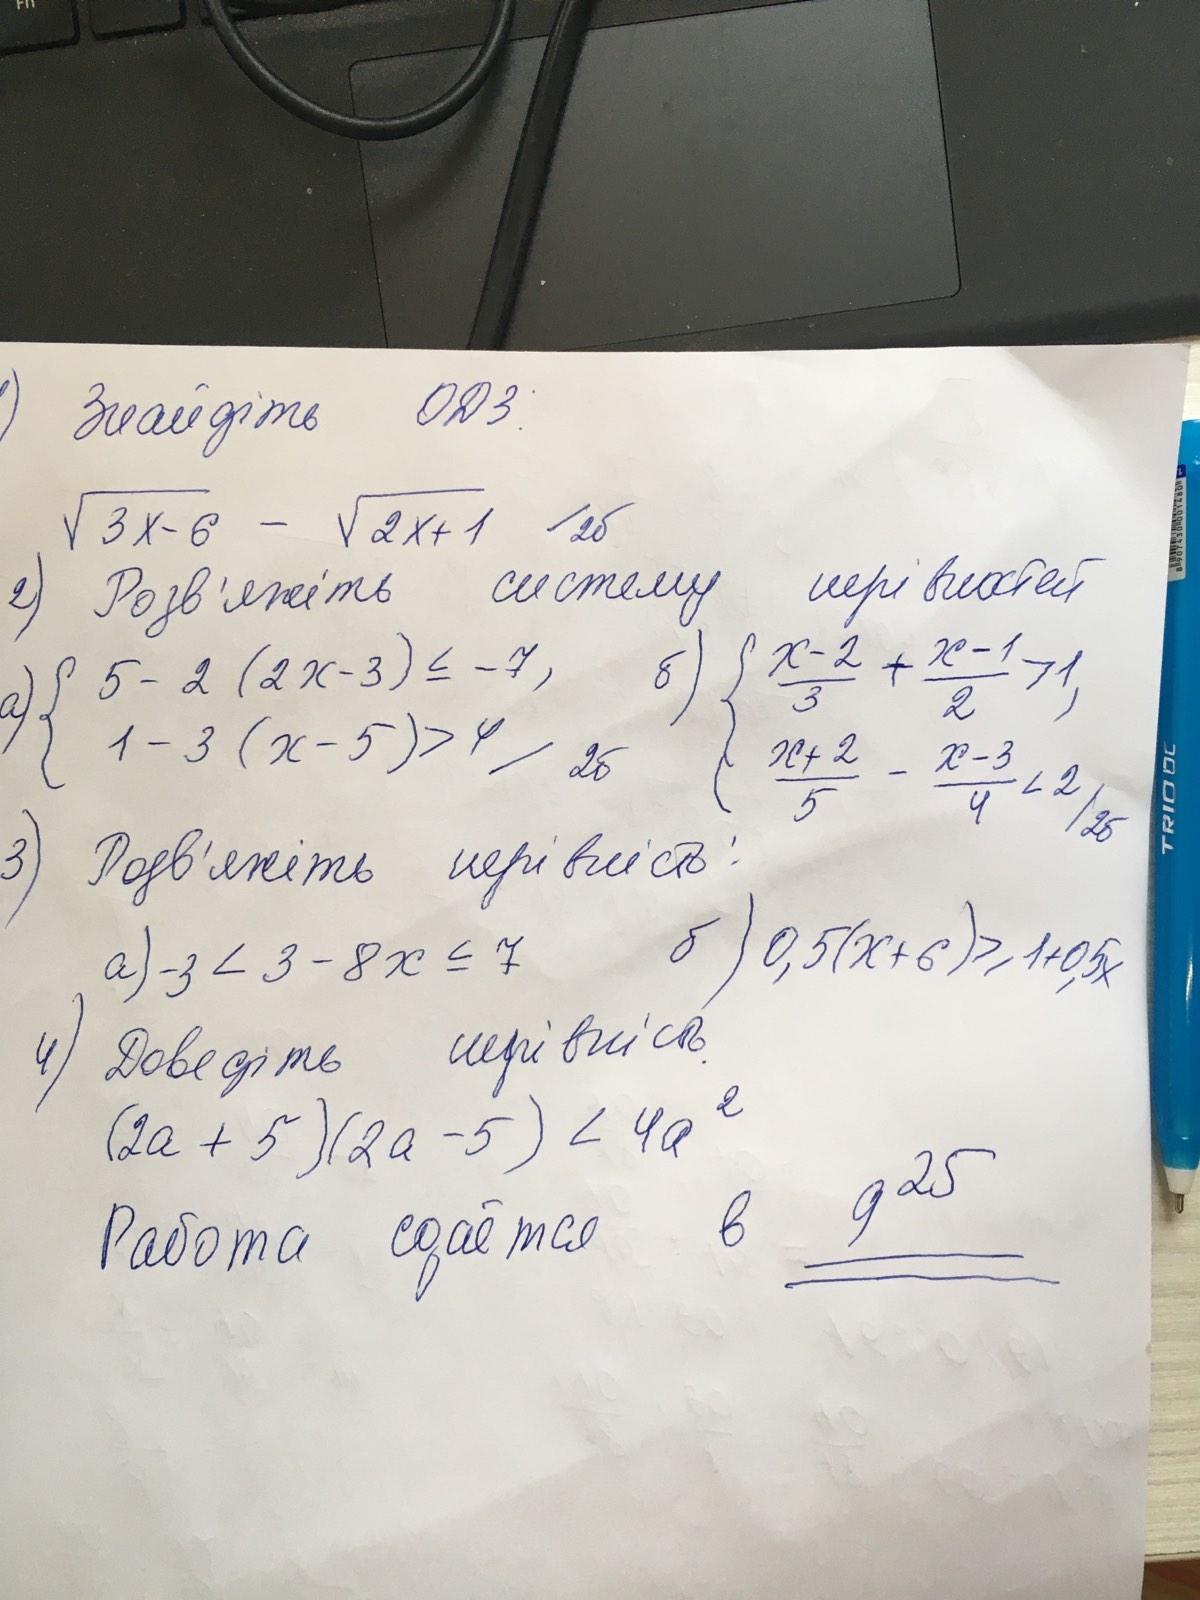 Fn
1) Знайдіть ОДЗ:
√3x-6 - √2x+1 /2б
2) Розв'яжіть систему нерівностей
а) { 5-2(2x-3) ≤ -7, б) { x-2/3 + x-1/2 > 1,
1-3(x-5) > 4 / 2б x+2/5 - x-3/4 < 2 / 2б
3) Розв'яжіть нерівність:
а) -3 < 3-8x ≤ 7 б) 0,5(x+6) ≥ 1+0,5x
4) Доведіть нерівність.
(2a+5)(2a-5) < 4a²
Работа сдаётся в 9²⁵
TRIO DC